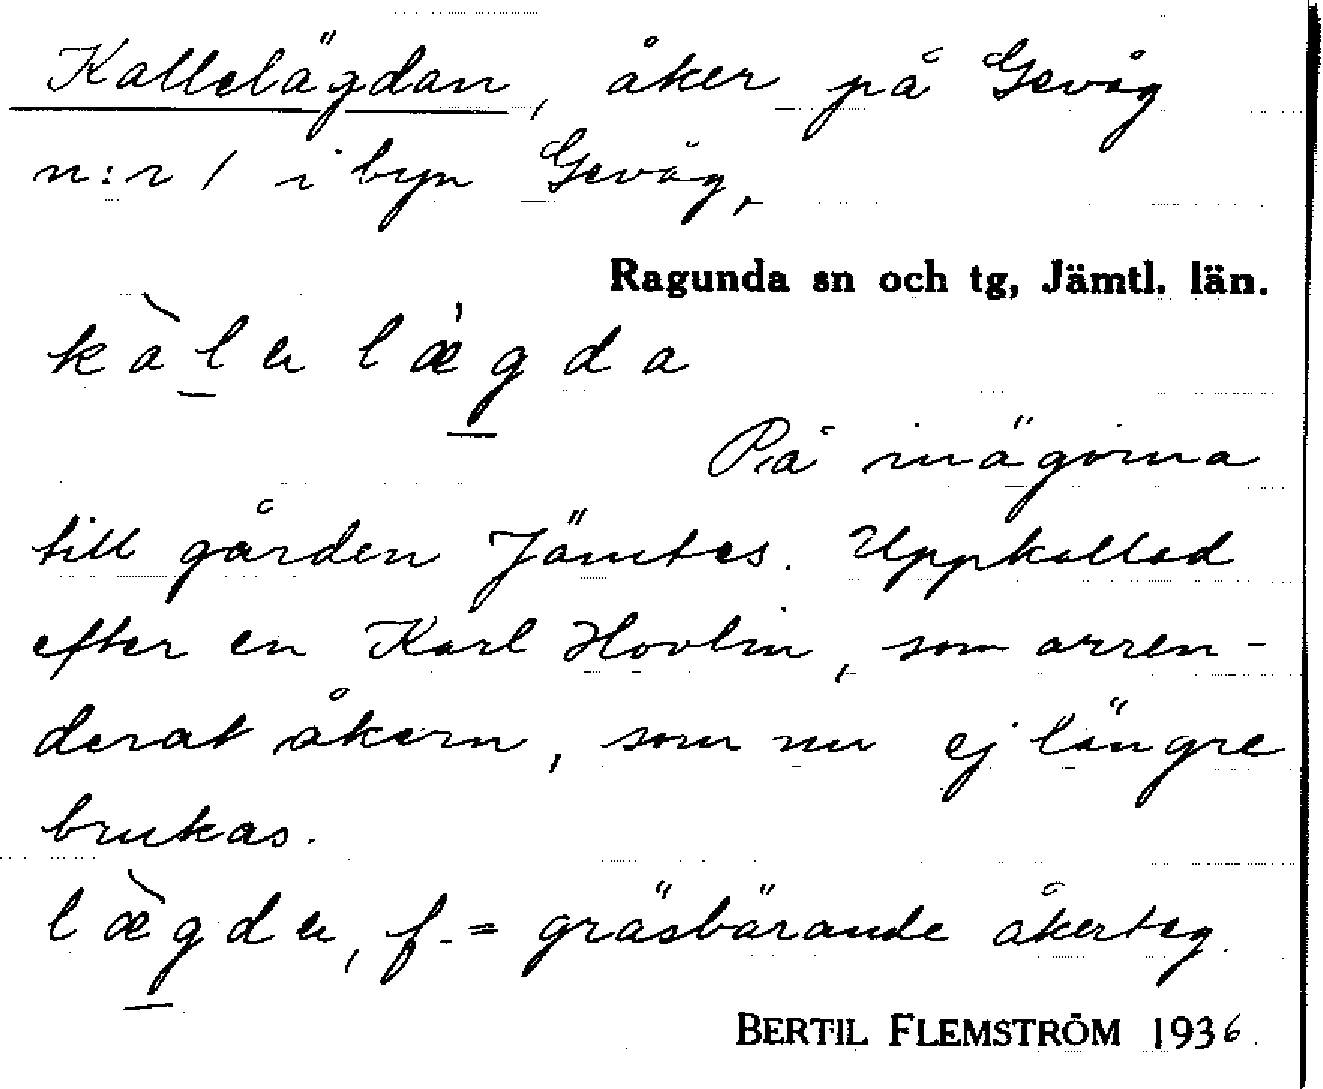 Kallelägdan, åker på Gevåg
n:r 1 i byn Gevåg,
Ragunda sn och tg, Jämtl. län.
kàlɐlǽgda
På inägorna
till gården Jämtes. Uppkallad
efter en Karl Hovlin, som arren-
derat åkern, som nu ej längre
brukas.
læ̀gdɐ, f. = gräsbärande åkerteg.
BERTIL FLEMSTRÖM 1936.